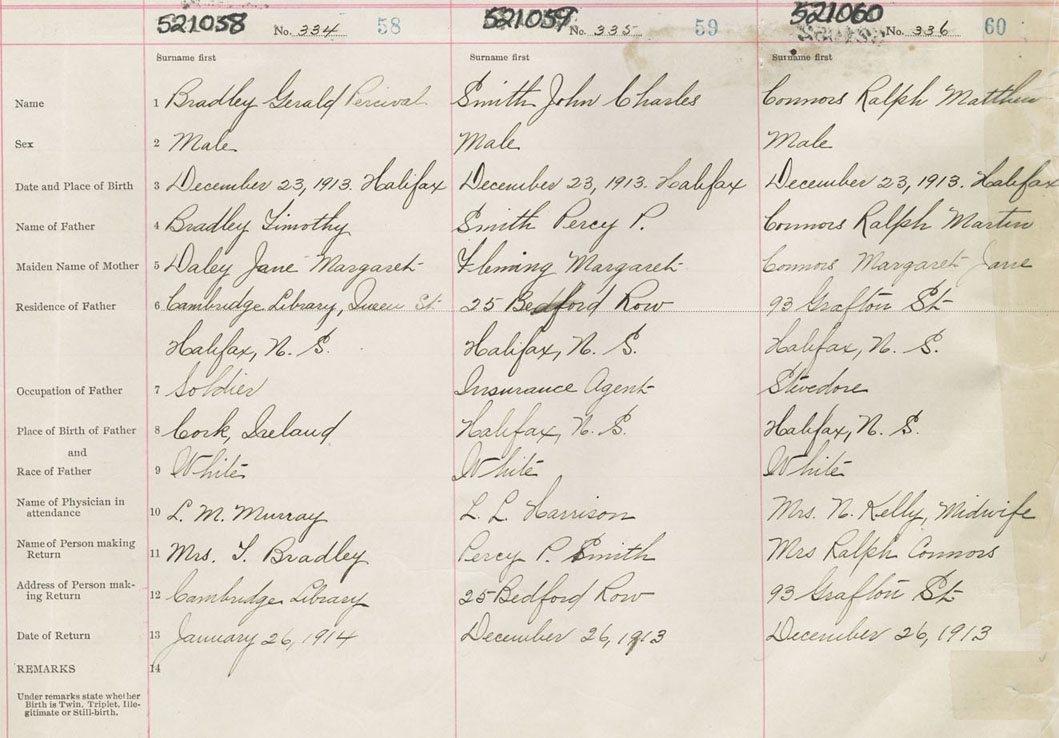 521058 No. 334 58 521059 No. 335 59 521060 No. 336 60
Surname first Surname first Surname first
Name 1 Bradley Gerald Percival Smith John Charles Connors Ralph Matthew
Sex 2 Male Male Male
Date and Place of Birth 3 December 23, 1913. Halifax December 23, 1913. Halifax December 23, 1913. Halifax
Name of Father 4 Bradley Timothy Smith Percy P. Connors Ralph Martin
Maiden Name of Mother 5 Daley Jane Margaret Fleming Margaret Connors Margaret Jane
Residence of Father 6 Cambridge Library, Queen St. 25 Bedford Row 93 Grafton St
Halifax, N. S. Halifax, N. S. Halifax, N. S.
Occupation of Father 7 Soldier Insurance Agent Stevedore
Place of Birth of Father 8 Cork, Ireland Halifax, N. S. Halifax, N. S.
and
Race of Father 9 White White White
Name of Physician in
attendance 10 L. M. Murray L. L. Harrison Mrs. N. Kelly, Midwife
Name of Person making
Return 11 Mrs. T. Bradley Percy P. Smith Mrs Ralph Connors
Address of Person mak-
ing Return 12 Cambridge Library 25 Bedford Row 93 Grafton St
Date of Return 13 January 26, 1914 December 26, 1913 December 26, 1913
REMARKS 14
Under remarks state whether
Birth is Twin, Triplet, Ille-
gitimate or Still-birth.